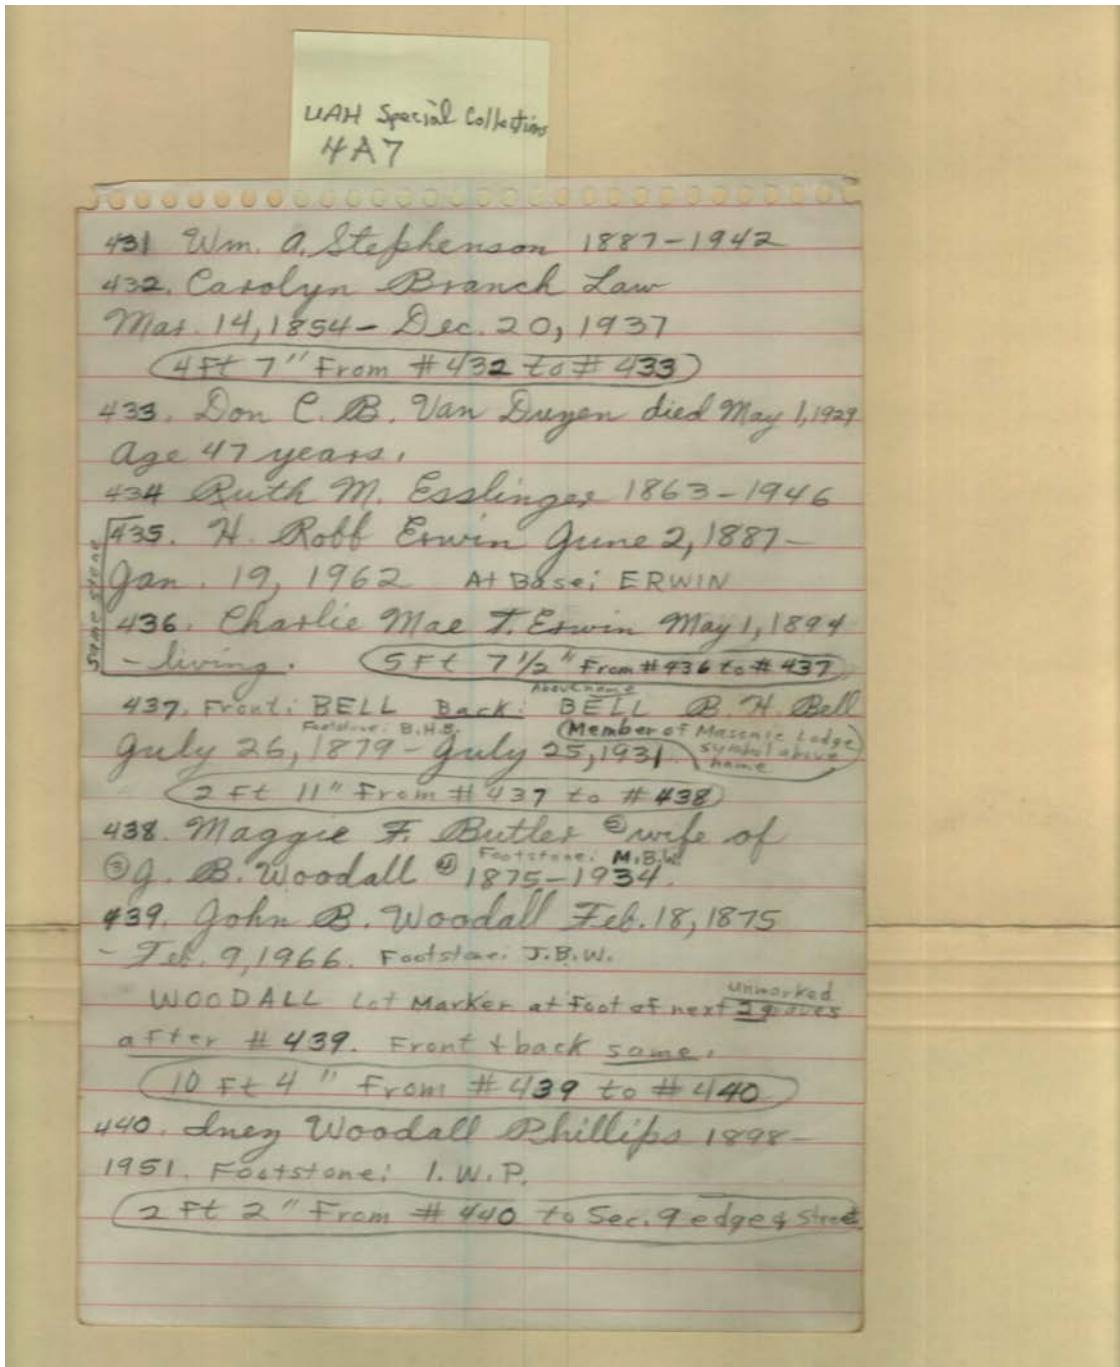 UAH Special Collections
4A7
431 Wm. A. Stephenson 1887-1942
432. Carolyn Branch Law
Mar. 14, 1854 - Dec. 20, 1937
4 Ft 7" From #432 to #433
433. Don C. B. Van Duyen died May 1, 1929
Age 47 years.
434 Ruth M. Esslinger 1863-1946
435. H. Robb Erwin June 2, 1887-
Jan. 19, 1962 At Base: ERWIN
same stone
436. Charlie Mae T. Erwin May 1, 1894
- living. 5 Ft 7 1/2" From #436 to #437
Above name
437. Front: BELL Back: BELL B. H. Bell
Footstone: B.H.B. (Member of Masonic Lodge
July 26, 1879 - July 25, 1931. symbol above
name
2 Ft 11" From #437 to #438
438. Maggie F. Butler ② wife of
Footstone: M.B.W.
③ J. B. Woodall ④ 1875-1934.
439. John B. Woodall Feb. 18, 1875
- Feb. 9, 1966. Footstone: J.B.W.
unmarked
WOODALL Lot Marker at foot of next 2 graves
after #439. Front & back same.
10 Ft 4" From #439 to #440
440. Inez Woodall Phillips 1898-
1951. Footstone: I.W.P.
2 Ft 2" From #440 to Sec. 9 edge & Street